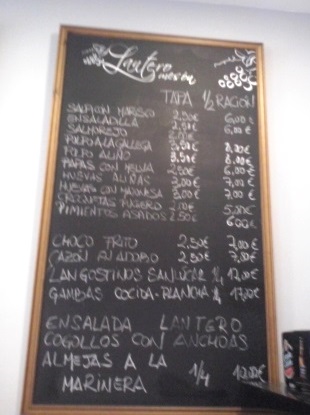 Lantero
TAPA 1/2 RACION
SALPICON MARISCO 2,50€ 6,00€
ENSALADILLA 2,50€ 6,00€
SALMOREJO
PULPO A LA GALLEGA 8,00€
PULPO ALIÑO 3,50€ 8,00€
PAPAS CON MELVA 2,50€ 6,00€
HUEVAS ALIÑAS 3,00€ 7,00€
HUEVAS CON MAYONESA 3,00€ 7,00€
2,50€ 5,00€
PIMIENTOS ASADOS 2,50€ 6,00€
CHOCO FRITO 2,50€ 7,00€
CAZON ADOBO 2,50€ 7,00€
LANGOSTINOS SANLUCAR 1/4 12,00€
GAMBAS COCIDA-PLANCHA 1/4 17,00€
ENSALADA LANTERO
COGOLLOS CON ANCHOAS
ALMEJAS A LA
MARINERA 1/4